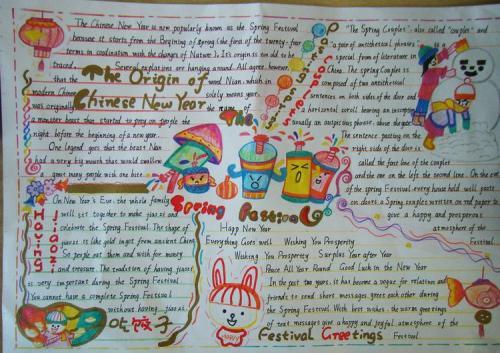 The Chinese New Year is now popularly known as the Spring Festival
because it starts from the Begining of Spring (the first of the twenty-four
terms in coodination with the changes of Nature). It's origin is too old to be
traced. Several explanations are hanging around. All agree, however,
that the word Nian, which in
modern Chinese solely means year,
was originally the name of
a monster beast that started to prey on people the
night before the beginning of a new year.
The Origin of
Chinese New Year
One legend goes that the beast Nian
had a very big mouth that would swallow
great many people with one bite.
Having Jiaozi
On New Year's Eve, the whole family
will get together to make jiaozi and
celebrate the Spring Festival. The shape of
jiaozi is like gold ingot from ancient China
So people eat them and wish for money
and treasure. The tradition of having jiaozi
is very important during the Spring Festival
You cannot have a complete Spring Festival
without having jiaozi.
吃饺子
The
Spring Festival
Paste Couplets
"The Spring Couplets", also called "couplet" and
"a pair of antithetical phrases", is a
special form of literature in
China. The spring Couplets is
composed of two antithetical
sentences on both sides of the door and
a horizontal scroll bearing an inscription
usually an auspicious phrase, above the gate
The sentence pasting on the
right side of the door is
called the first line of the couplet
and the one on the left the second line. On the eve
of the spring Festival every house hold will paste
on doors a Spring couplet written on red paper to
give a happy and prosperous
atmosphere of the
Festival.
Happ New Year
Everything Goes well Wishing You Prosperity
Wishing You Prosperity Surplus Year after Year
Peace All Year Round Good Luck in the New Year
In the past two years, it has become a vogue for relatives and
friends to send short messages greet each other during
the Spring Festival. With best wishes, the warm greetings
of text messages give a happy and joyful atmosphere of the
Festival.
Festival Greetings